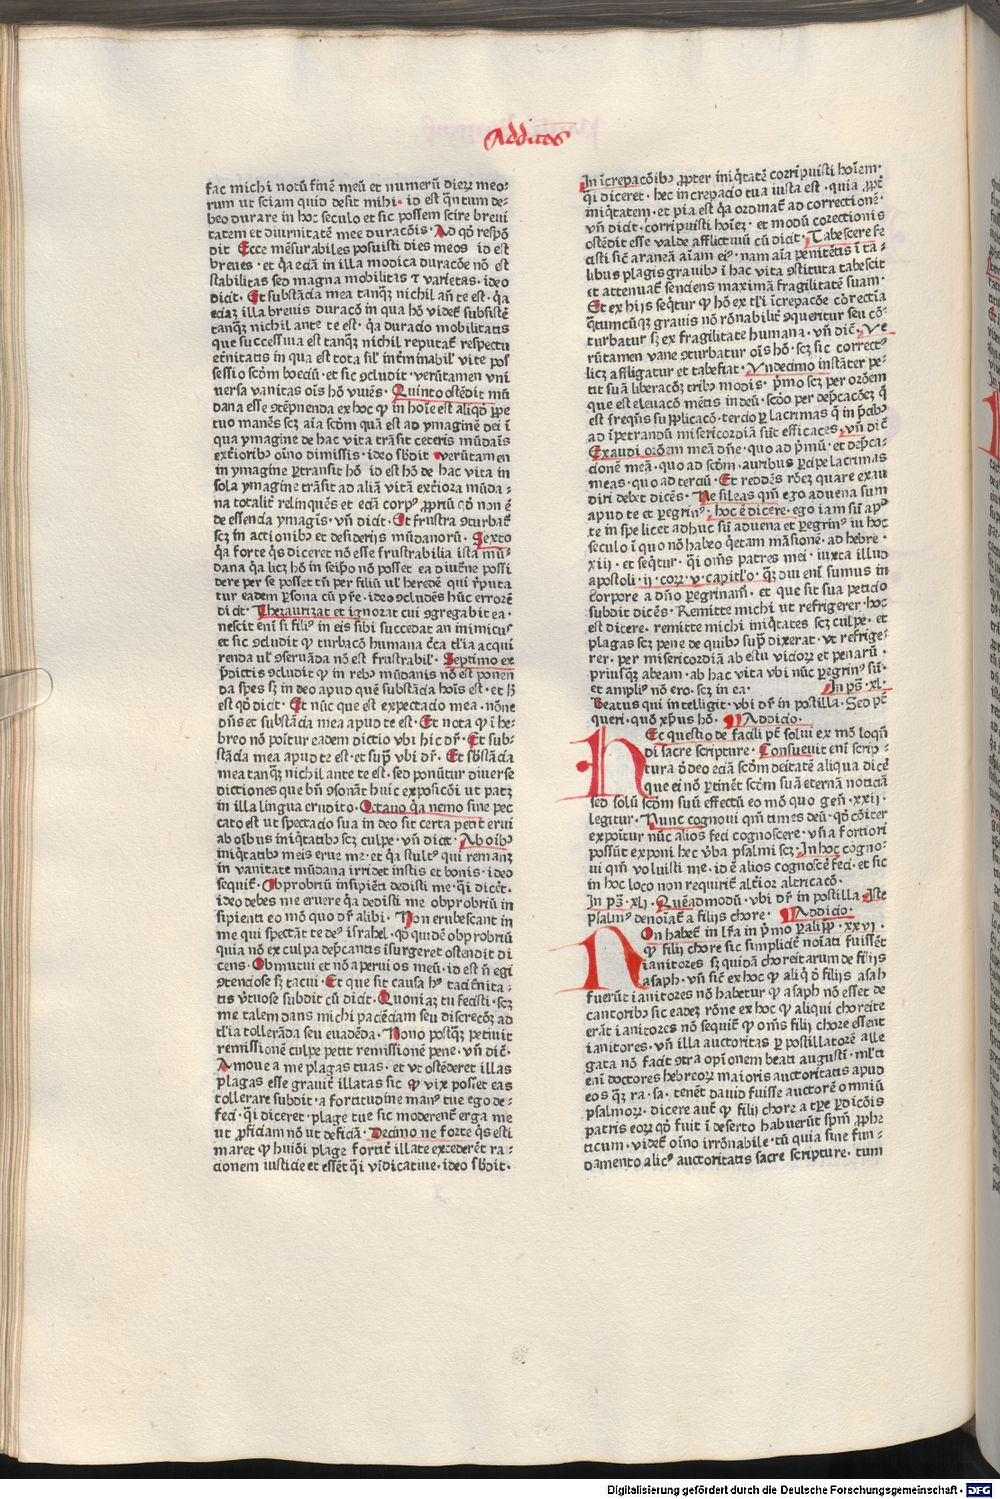 Addic̄oēs
fac michi notū finē meū et numerū dierꝝ meo⸗
rum ut sciam quid desit mihi · io est q̄ntum de⸗
beo durare in hoc seculo et sic possem scire brevi
tatem et diurnitatē mee duracōis · Ad qđ respō
dit Ecce mēsurabiles posuisti dies meos id est
breues · et q̄a eciā in illa modica duracōe nō est
stabilitas sed magna mobilitas ⁊ varietas · ideo
dicit · Et substācia mea tanqꝫ nichil añ te est · q̄a
eciaꝫ illa brevis duracō in qua hō videt᷑ subsistē
tanqꝫ nichil ante te est · q̄a duracio mobilitatis
que successiua est tanqꝫ nichil reputat᷑ respectu
et̄nitatis in qua est tota sil' int̄minabil' vite pos
sessio scōm boeciū · et sic ꝯcludit · verūtamen vni
versa vanitas oīs hō viuēs · Quinto ostēdit mū
dana esse ꝯtēpnenda ex hoc ꝙ in hoīe est aliqđ ꝑpe
tuo manēs scꝫ aīa scōm quā est ad ymaginē dei ī
qua ymagine de hac vita trāsit ceteris mūdaīs
ext̄ioribꝰ oīno dimissis · ideo sb̄dit verūtamen
in ymagine ꝑtransit hō id est hō de hac vita in
sola ymagine trāsit ad aliā vitā ext̄iora mūda⸗
na totalit̄ relinquēs et eciā corpꝰ ꝓpriū qđ non ē
de essencia ymagīs · vñ dicit · Et frustra ꝯturbat᷑
scꝫ in actionibꝰ et desiderijs mūdanorū · Sexto
q̄a forte q̄s diceret nō esse frustrabilia ista mū⸗
dana q̄a licꝫ hō in seip̄o nō posset ea diuēne possi
dere per se posset tñ per filiū ul' heredē qui r̄puta
tur eadem ꝑsona cū p̄re · ideo ꝯcludēs hūc errorē
dicit · Thezaurizat et ignorat cui ꝯgregabit ea ·
nescit enī si filiꝰ in eis sibi succedat an inimicuꝰ
et sic ꝯcludit ꝙ turbacō humana c̄ca tl'ia acqui
renda ul' ꝯseruāda nō est frustrabil' · Septimo ex
p̄dictis ꝯcludit ꝙ in rebꝰ mūdanis nō est ponen
da spes sꝫ in deo apud quē substācia hoīs est · et ħ
est qđ dicit · Et nūc que est expectacio mea · nōne
dñs et substācia mea apud te est · Et nota ꝙ ī he⸗
breo nō poītur eadem dictio vbi hic dr̄ · Et sub⸗
stācia mea apud te est · et sup̄ vbi dr̄ · Et sb̄stācia
mea tanqꝫ nichil ante te est · sed ponūtur diuerse
dictiones que bñ ꝯsonāt huic exposicōi ut patꝫ
in illa lingua erudito · Octauo q̄a nemo sine pec
cato est ut spectacio sua in deo sit certa petit erui
ab oībus iniq̄tatibꝰ scꝫ culpe · vñ dicit · Ab oībꝰ
iniq̄tatibꝰ meis erue me · et q̄a stultꝰ qui remanꝫ
in vanitate mūdana irridet iustis et bonis · ideo
sequit᷑ · Obprobriū insipiēti dedisti me · q̄i dicet᷑ ·
ideo debes me eruere q̄a dedisti me obprobriū in
sipienti eo mō quo dr̄ alibi · Non erubescant in
me qui spectāt te deꝰ israhel · qđ quidē obprobriū
quia nō ex culpa dep̄cantis īsurgeret ostendit di
cens · Obmutui et nō aperui os meū · id est ñ egi
ꝯtenciose sꝫ tacui · Et que sit causa hꝰ taciēnita⸗
tis v̄tuose subdit cū dicit · Quoniaꝫ tu fecisti · scꝫ
me talem dans michi paciēciam seu discrecōꝫ ad
tl'ia tollerāda seu euadēda · Nono postqꝫ petiuit
remissionē culpe petit remissionē pene · vñ dic̄ ·
Amoue a me plagas tuas · et ut ostēderet illas
plagas esse grauit̄ illatas sic ꝙ vix posset eas
tollerare subdit · a fortitudine manꝰ tue ego de⸗
feci · q̄i diceret · plage tue sic moderent᷑ erga me
ut ꝓficiam nō ut deficiā · Decimo ne forte q̄s esti
maret ꝙ huiōi plage fortit̄ illate excederēt ra⸗
cionem iusticie et essēt q̄i vīdicatiue · ideo sb̄dit ·
In īcrepacōibꝰ ꝓpter iniq̄tatē corripuisti hoīem ·
q̄i diceret · hec increpacio tua iusta est · quia ꝓpt̄
iniq̄tatem · et pia est q̄a ordinat᷑ ad correctionē ·
vñ dicit · corripuisti hoīeꝫ · et modū corectionis
ostēdit esse valde afflictiuū cū dicit · Tabescere fe
cisti sic̄ araneā aīam eiꝰ · nam aīa penitētis ī ta⸗
libus plagis grauibꝰ ī hac vita ꝯstituta tabescit
et attenuat᷑ senciens maximā fragilitatē suam ·
Et ex hijs seq̄tur ꝙ hō ex tl'i īcrepacōe correctia
q̄tumcūqꝫ grauis nō rōnabilit̄ ꝯqueritur seu cō⸗
turbatur sꝫ ex fragilitate humana · vñ dic̄ · Ve
rūtamen vane ꝯturbatur oīs hō · scꝫ sic correctꝰ
licꝫ affligatur et tabefiat · Vndecimo instāter pe⸗
tit suā liberacōeꝫ tribꝰ modis · p̄mo scꝫ per orōem
que est eleuacō mētis in deū · scđo per dep̄cacōeꝫ q̄
est freq̄ns supplicacō · tercio ꝑ lacrimas q̄ in p̄cibꝰ
ad īpetrandū misericordiā sūt efficaces · vñ dic̄
Exaudi orōem meā dñe · quo ad p̄mū · et dep̄ca⸗
cionē meā · quo ad scđm · auribus ꝑcipe lacrimas
meas · quo ad terciū · Et reddēs rōeꝫ quare exau
diri debet dicēs · Ne sileas qm̄ ego aduena sum
apud te et ꝑegrinꝰ · hoc ē dicere · ego iam sū ap̄
te in spe licet adhuc sū aduena et ꝑegrinꝰ in hoc
seculo ī quo nō habeo q̄etam māsionē · ad hebre ·
xiij · et seq̄tur · q̄i om̄s patres mei · iuxta illud
apostoli · ij · corꝝ · v · capitl'o · qꝫ diu enī sumus in
corpore a dño ꝑegrinam̄ · et que sit sua peticio
subdit dicēs · Remitte michi ut refrigerer · hoc
est dicere · remitte michi iniq̄tates scꝫ culpe · et
plagas scꝫ pene de quibꝰ sup̄ dixerat · vt refrige⸗
rer · per misericordiā ab estu vicioꝝ et penarū ·
priusqꝫ abeam · ab hac vita vbi nūc ꝑegrinꝰ sū ·
et ampliꝰ nō ero · scꝫ in ea · In ps̄ · xl ·
Beatus qui intelligit · vbi dr̄ in postilla · Sed pt̄
queri · quō xp̄us hō · ¶ Addicio ·
Hec questio de facili pt̄ solui ex mō loqn̄
di sacre scripture · Consueuit enī scrip⸗
tura ꝺ̄ deo eciā scōm deitatē aliqua dicē
que ei nō ꝑtinēt scōm suā eternā noticiā
sed solū scōm suū effectū eo mō quo geñ · xxij ·
legitur · Nunc cognoui qm̄ times deū · qđ cōiter
expoītur nūc alios feci cognoscere · vñ a fortiori
possūt exponi hec v̄ba psalmi scꝫ · In hoc cogno⸗
ui qm̄ voluisti me · id ē alios cognoscē feci · et sic
in hoc loco non requirit᷑ alt̄ior altricacō ·
In ps̄ · xli · Quēadmodū · vbi dr̄ in postilla · Iste
psalmꝰ denoīat᷑ a filijs chore · ¶ Addicio ·
Non habet᷑ in lr̄a in p̄mo ꝑalip̄p · xxvi ·
ꝙ filij chore sic simplicit̄ noīati fuissēt
ianitores sꝫ quidā choreitarum de filijs
asaph · vñ sic̄ ex hoc ꝙ aliq̄ ꝺ̄ filijs asah
fuerūt ianitores nō habetur ꝙ asaph nō esset de
cantoribꝰ sic eadeꝫ rōne ex hoc ꝙ aliqui choreite
erāt ianitores nō sequit᷑ ꝙ om̄s filij chore essent
ianitores · vñ illa auctoritas ꝑ postillatorē alle
gata nō facit ꝯtra opīonem beati augustī · ml'ti
enī doctores hebreoꝝ maioris auctoritatis apud
eos qꝫ ra · sa · tenēt dauid fuisse auctorē omniū
psalmoꝝ · dicere aut᷑ ꝙ filij chore a tp̄e ꝑdicōis
patris eoꝝ qđ fuit ī deserto habuerūt sp̄m ꝓphe
ticum · videt᷑ oīno irrōnabile · tū quia sine fun⸗
damento alicꝰ auctoritatis sacre scripture · tum
Digitalisierung gefördert durch die Deutsche Forschungsgemeinschaft - DFG